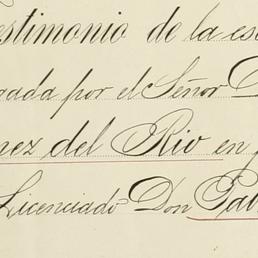 estimonio de la es
gada por el Señor D
nez del Rio en
Licenciado Don Pab